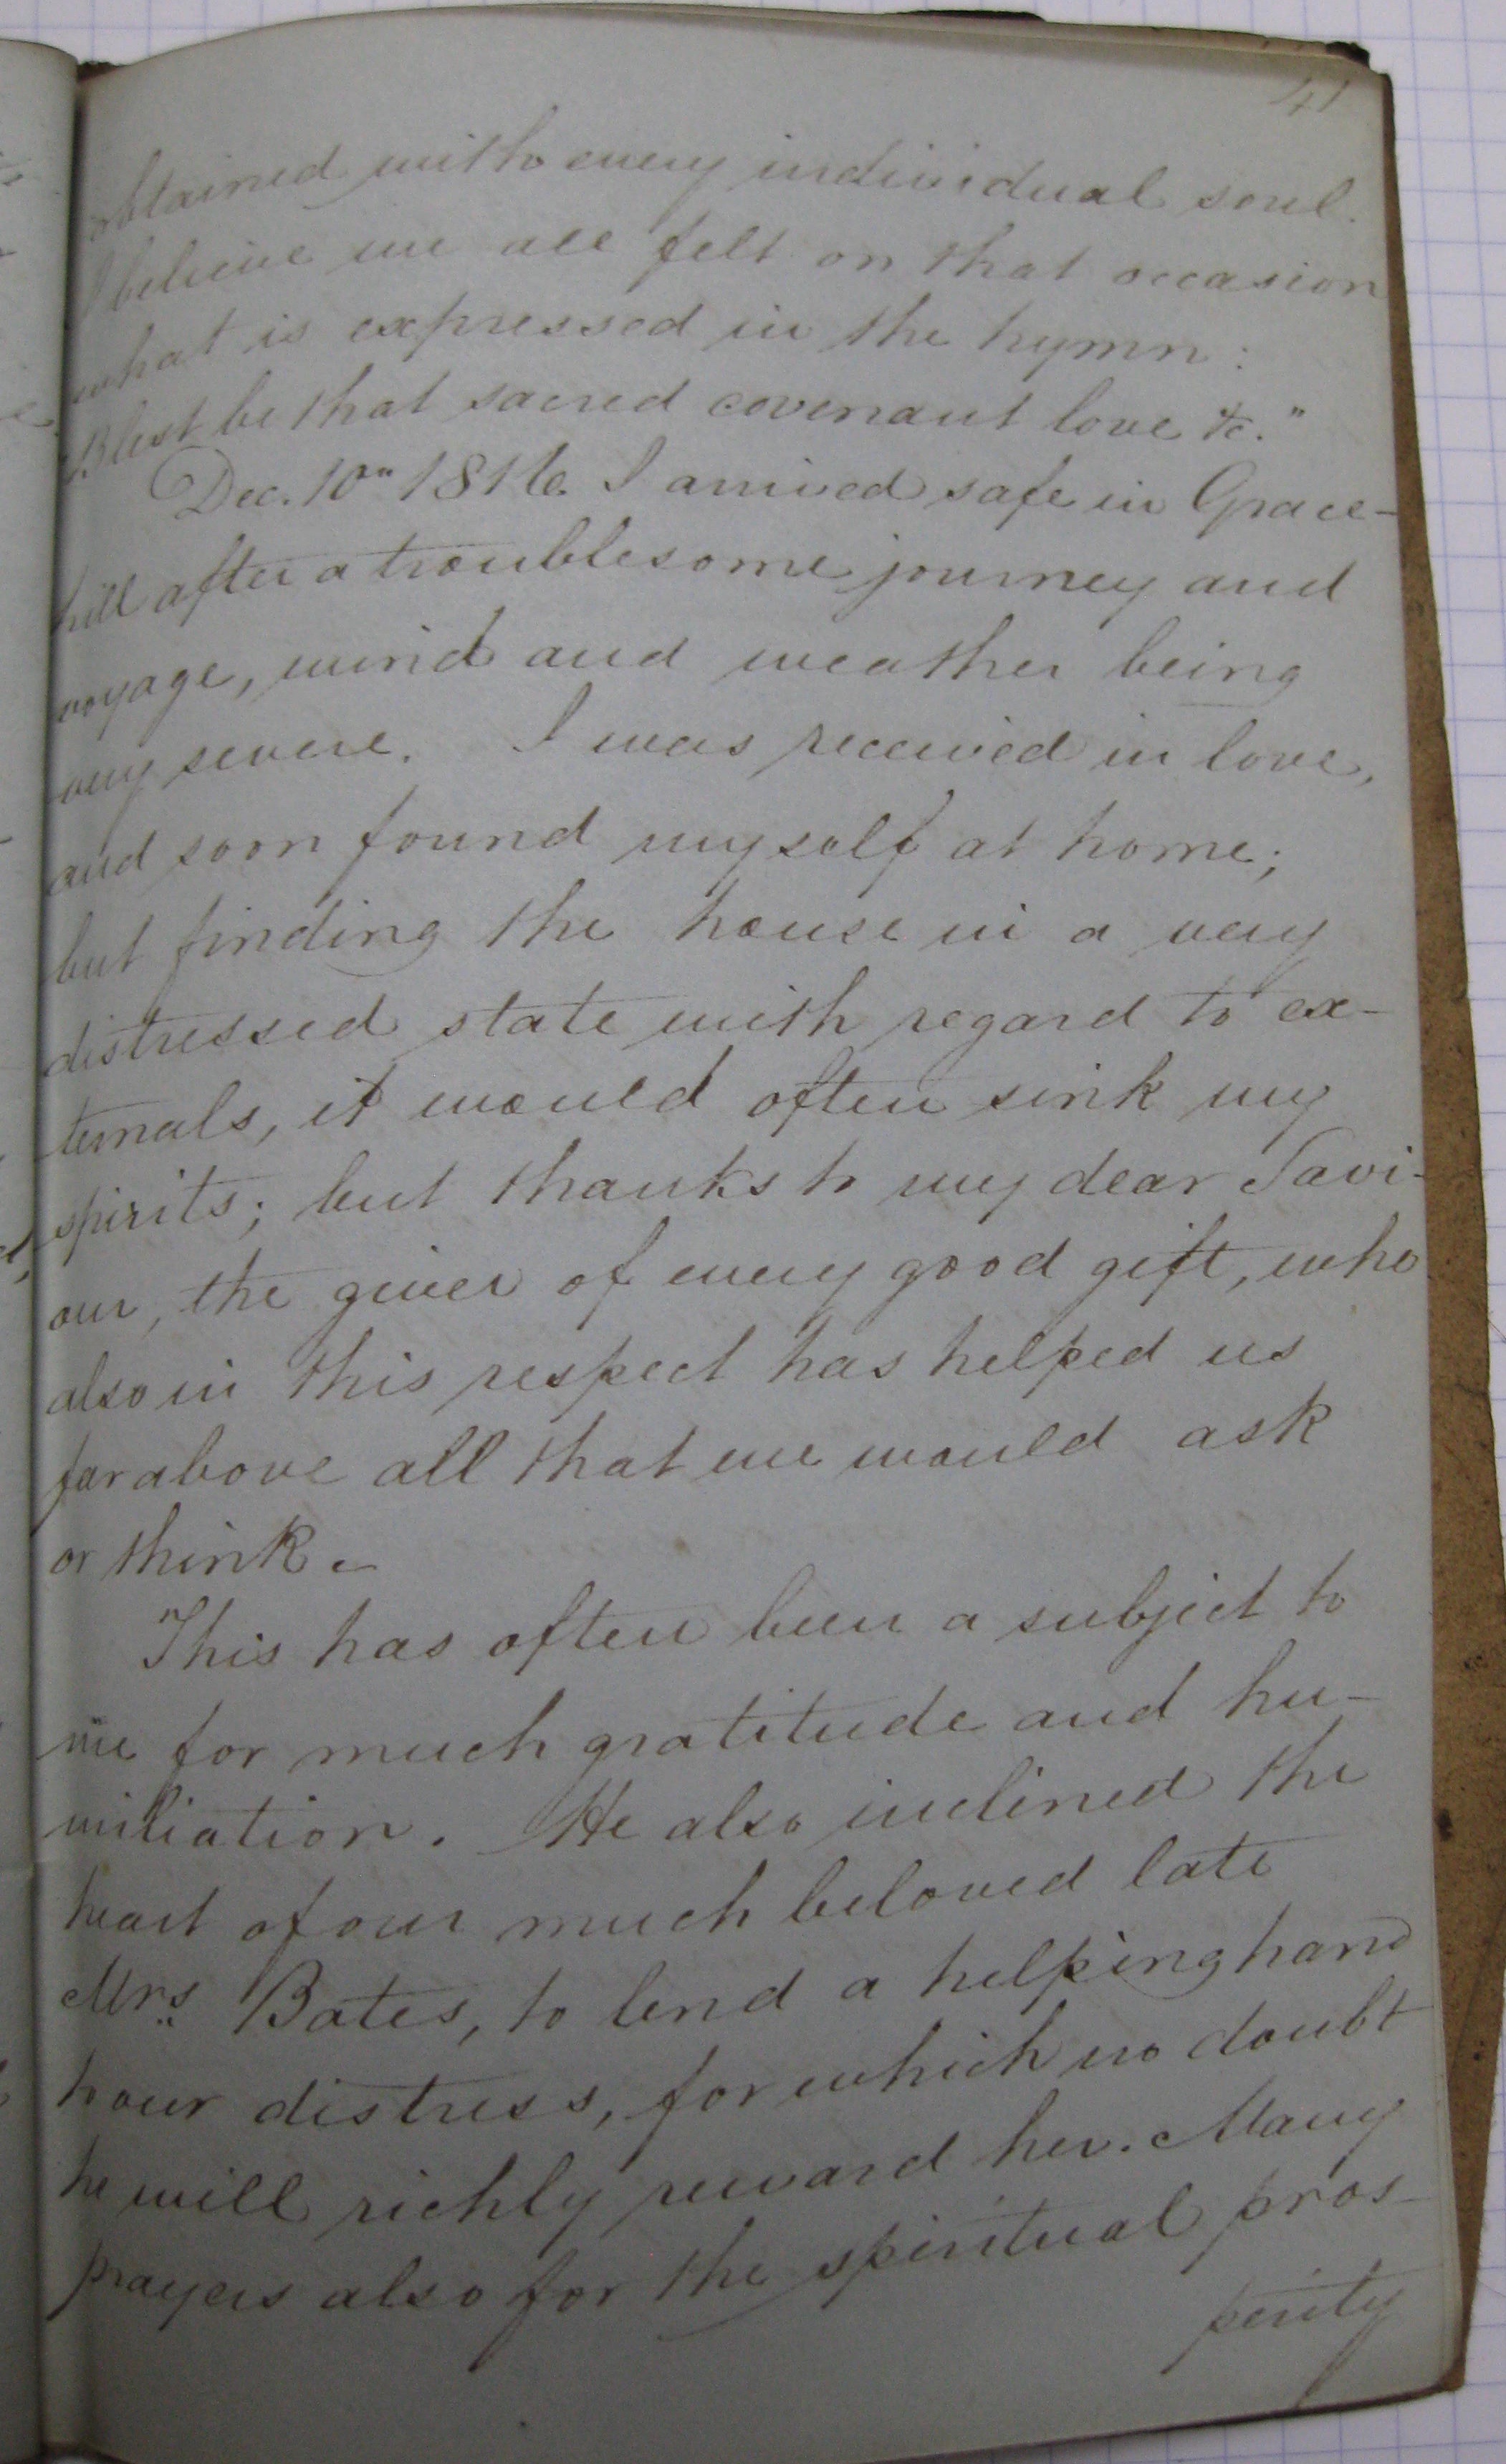 41
obtained with every individual soul.
I believe we all felt on that occasion
what is expressed in the hymn:
"Blest be that sacred covenant love &c."
Dec. 10th 1816 I arrived safe in Grace-
hill after a troublesome journey and
voyage, wind and weather being
very severe. I was received in love,
and soon found myself at home;
but finding the house in a very
distressed state with regard to ex-
ternals, it would often sink my
spirits; but thanks to my dear Savi-
our, the giver of every good gift, who
also in this respect has helped us
far above all that we would ask
or think.
This has often been a subject to
me for much gratitude and hu-
miliation. He also inclined the
heart of our much beloved late
Mrs. Bates, to lend a helping hand
to our distress, for which no doubt
he will richly reward her. Many
prayers also for the spiritual pros-
perity